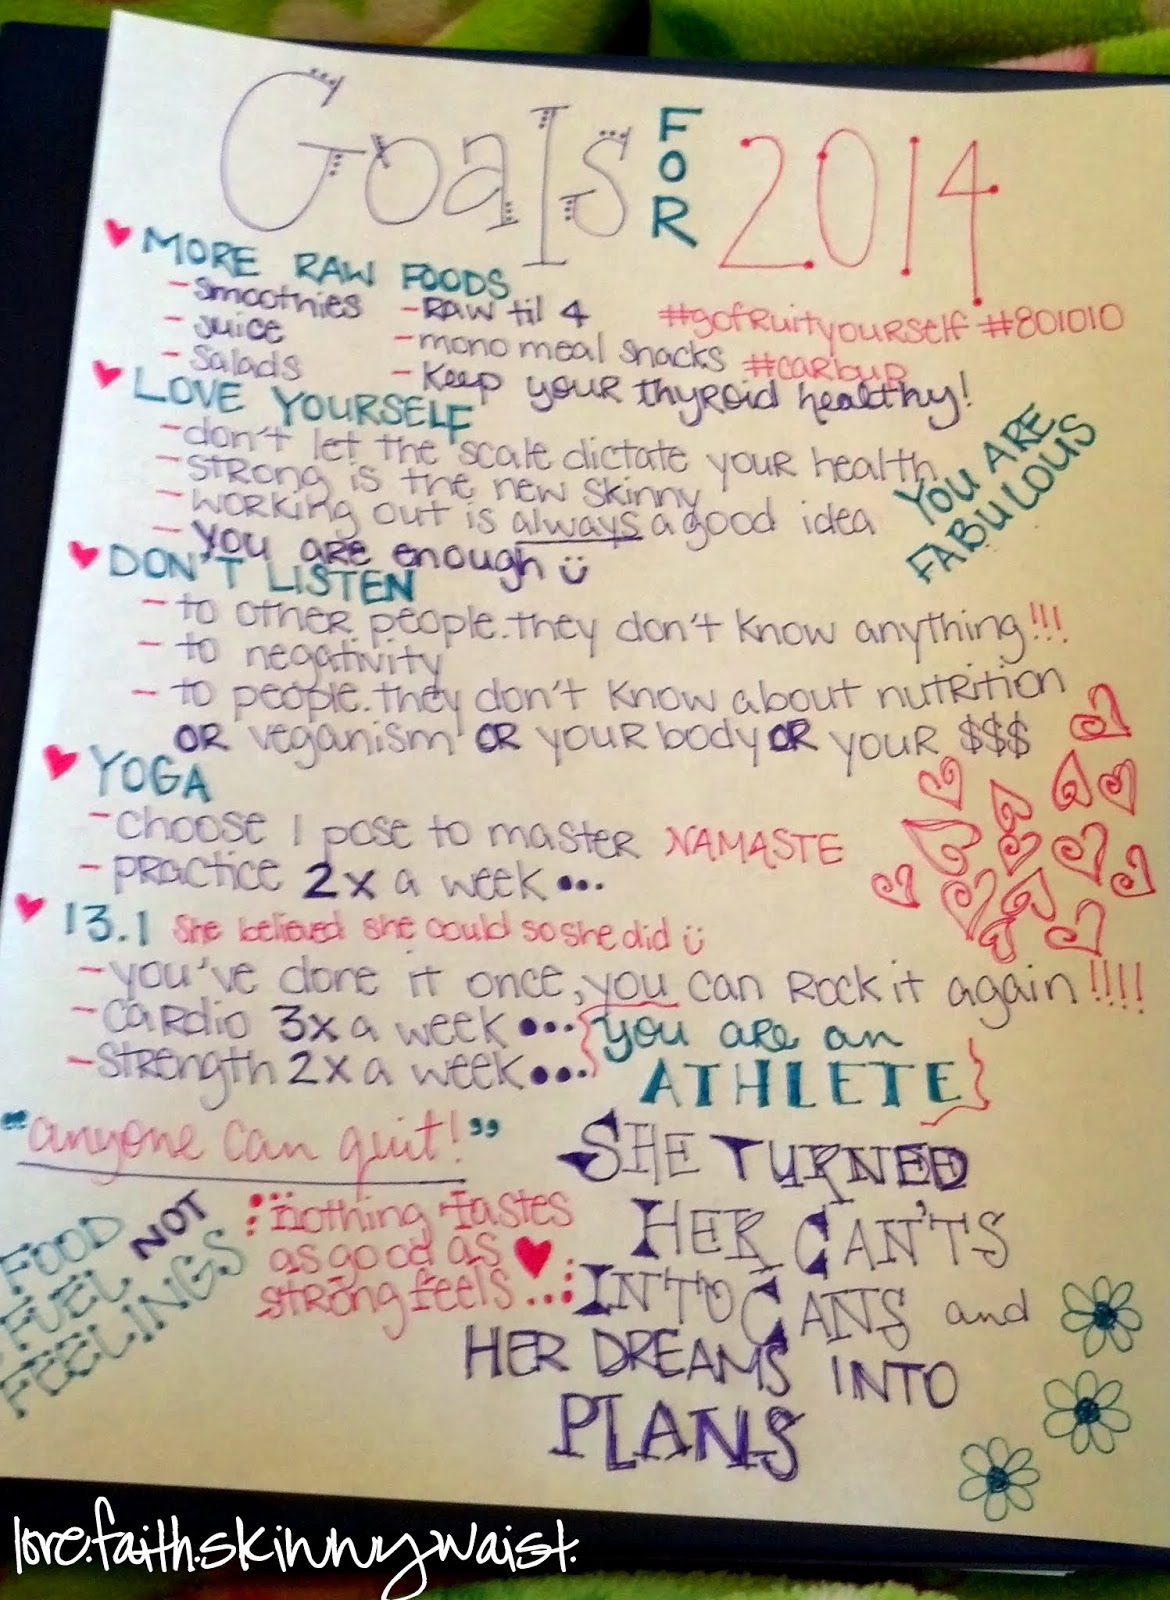 Goals FOR 2014
MORE RAW FOODS
- smoothies
- juice
- salads
- RAW til 4
- mono meal snacks
- keep your thyroid healthy!
#gofruityourself #801010
#carbup
LOVE YOURSELF
- don't let the scale dictate your health
- strong is the new skinny
- working out is always a good idea
- you are enough ü
YOU ARE
FABULOUS
DON'T LISTEN
- to other people. they don't know anything!!!
- to negativity
- to people. they don't know about nutrition
OR veganism OR your body OR your $$$
YOGA
- choose 1 pose to master NAMASTE
- practice 2x a week •••
13.1 She believed she could so she did ü
- you've done it once, you can rock it again!!!!
- cardio 3x a week •••
- strength 2x a week •••
you are an
ATHLETE
"anyone can quit!"
FOOD
FUEL NOT
FEELINGS
nothing tastes
as good as
strong feels...
SHE TURNED
HER CAN'TS
INTO CANS and
HER DREAMS INTO
PLANS
love.faith.skinnywaist.